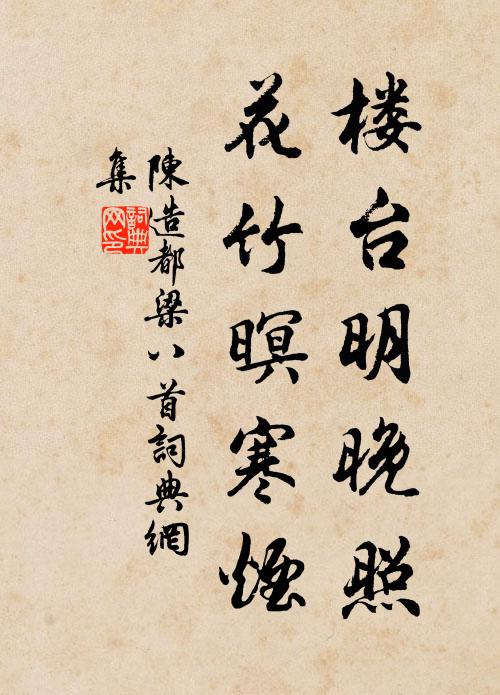 楼台明晚照
花竹暝寒煙
陳造都梁八首詞典網
集
詞典网印